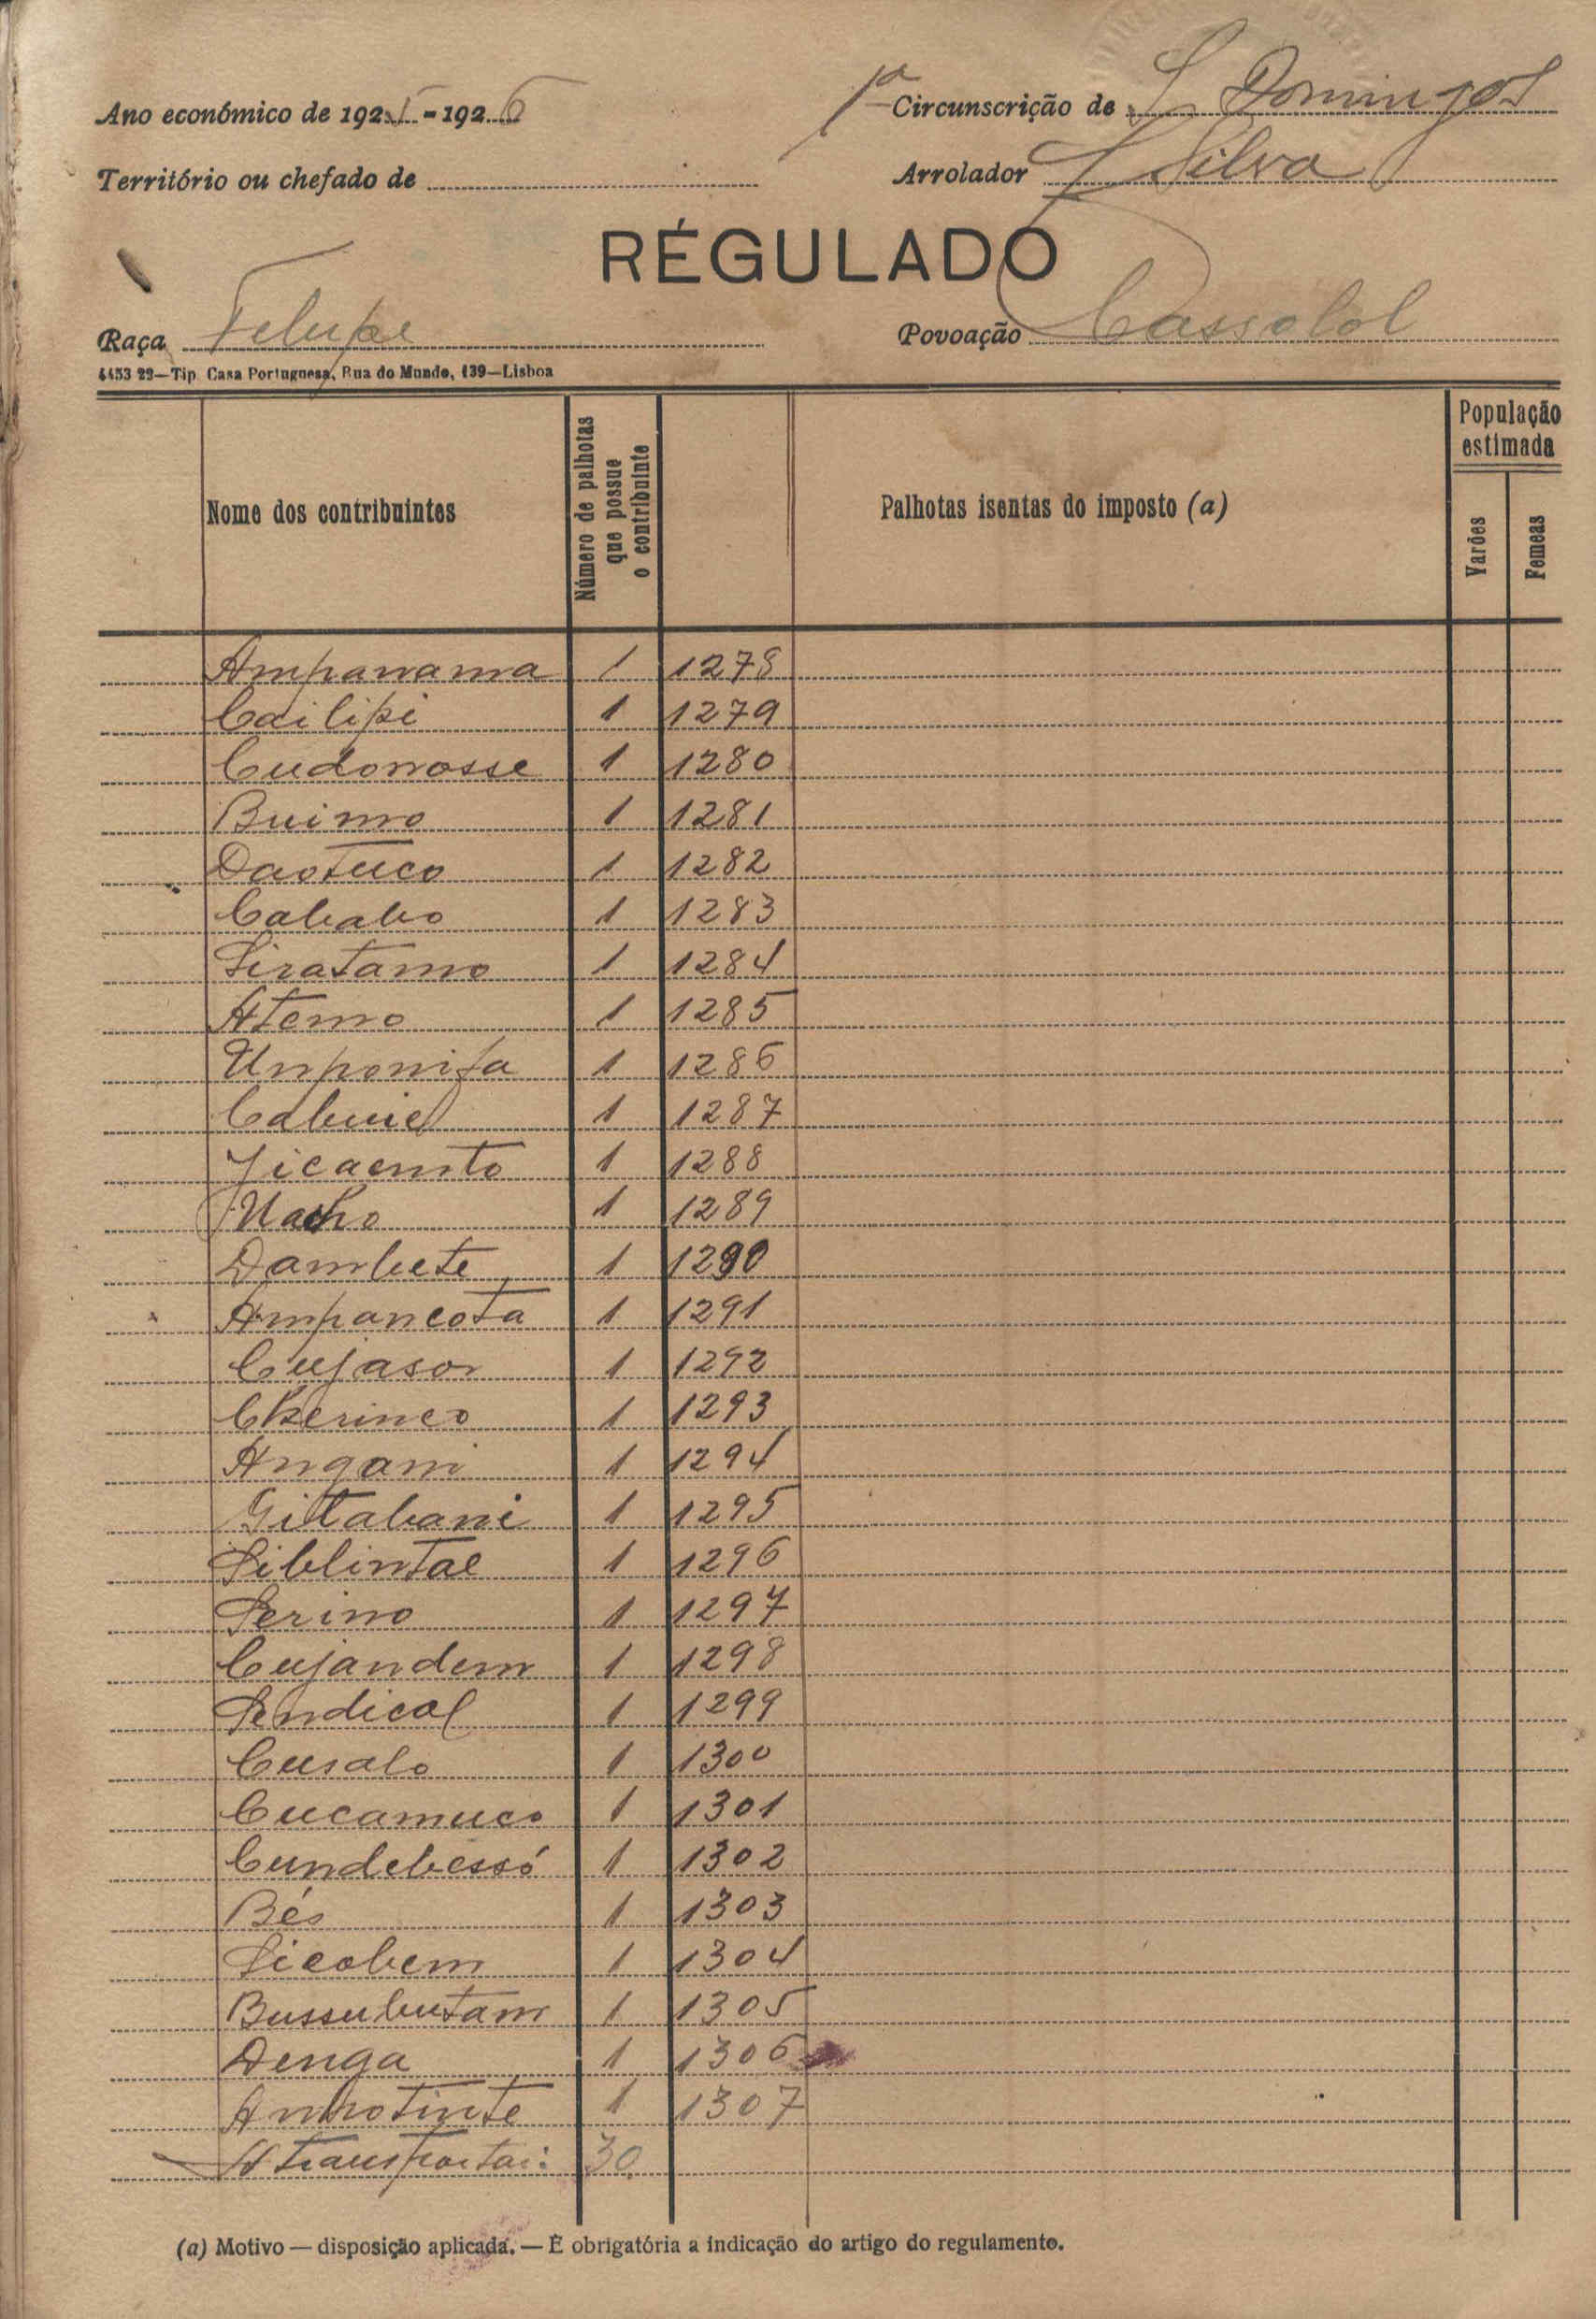 Ano económico de 1925-1926
1ª Circunscrição de S. Domingos
Território ou chefado de
Arrolador Silva
RÉGULADO
Raça Felupe
Povoação Cassolol
4453 22—Tip. Casa Portuguesa, Rua do Mundo, 139—Lisboa
Nome dos contribuintes
Número de palhotas que possue o contribuinte
Palhotas isentas do imposto (a)
População estimada
Varões
Femeas
Ampanama 1 1278
Cailipi 1 1279
Cudonosse 1 1280
Buimo 1 1281
Daotuco 1 1282
Cababo 1 1283
Siratamo 1 1284
Atemo 1 1285
Unponifa 1 1286
Cabuiel 1 1287
Jicaemto 1 1288
1 1289
Dambete 1 1290
Ampancota 1 1291
Cujason 1 1292
1 1293
Angani 1 1294
Gitabani 1 1295
Siblintae 1 1296
Serino 1 1297
Cujandem 1 1298
Sendical 1 1299
Cusalo 1 1300
Cucamuco 1 1301
Cundebessó 1 1302
Bés 1 1303
Sicobem 1 1304
Bussubutam 1 1305
Denga 1 1306
1 1307
A transportar: 30
(a) Motivo — disposição aplicada. — É obrigatória a indicação do artigo do regulamento.